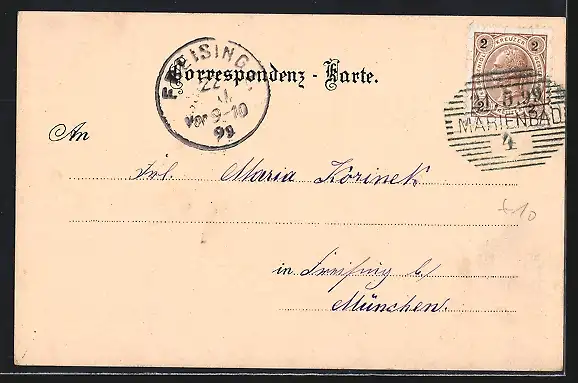 2 KREUZER 2
2
5 99
MARIENBAD
4
FREISING
22
Vor 9-10
99
Correspondenz - Karte.
An
Frl. Maria Korinek
in Freising b/
München.